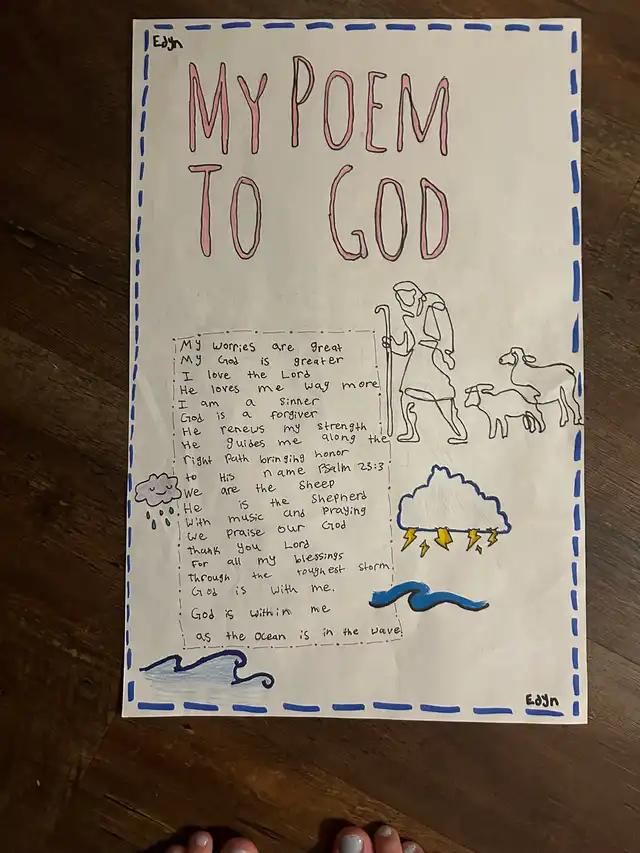 Edyn
MY POEM
TO GOD
My worries are great
My God is greater
I love the Lord
He loves me way more
I am a sinner
God is a forgiver
He renews my strength
He guides me along the
right path bringing honor
to His name Psalm 23:3
We are the sheep
He is the Shepherd
With music and praying
We praise our God
Thank you Lord
For all my blessings
Through the toughest storm
God is with me.
God is within me
as the ocean is in the wave.
Edyn